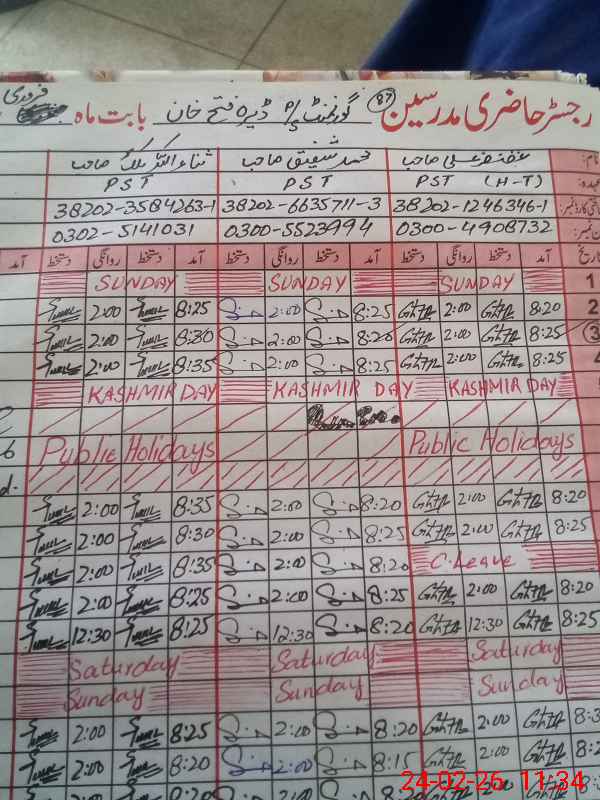 فروری
رجسٹر حاضری مدرسین (87) گورنمنٹ پ/س ڈیرہ فتح خان بابت ماہ
نام: غضنفر علی صاحب محمد شفیق صاحب ثناء اللہ صاحب
عہدہ: PST (H-T) PST PST
38202-1246346-1 38202-6635711-3 38202-3584263-1
0300-4908732 0300-5523994 0302-5141031
تاریخ آمد دستخط روانگی دستخط آمد دستخط روانگی دستخط آمد دستخط روانگی دستخط آمد
1 SUNDAY SUNDAY SUNDAY
2 8:20 2:00 8:25 2:00 8:25 2:00
3 8:25 2:00 8:20 2:00 8:30 2:00
4 8:25 2:00 8:25 2:00 8:35 2:00
KASHMIR DAY KASHMIR DAY KASHMIR DAY
Public Holidays Public Holidays
8:20 2:00 8:20 2:00 8:35 2:00
8:25 2:00 8:25 2:00 8:30 2:00
C.Leave 8:20 2:00 8:35 2:00
8:20 2:00 8:25 2:00 8:25 2:00
8:25 12:30 8:20 12:30 8:25 12:30
Saturday Saturday Saturday
Sunday Sunday Sunday
2:00 8:20 2:00 8:25 2:00
2:00 8:15 2:00 8:20 2:00
24-02-25 11:34